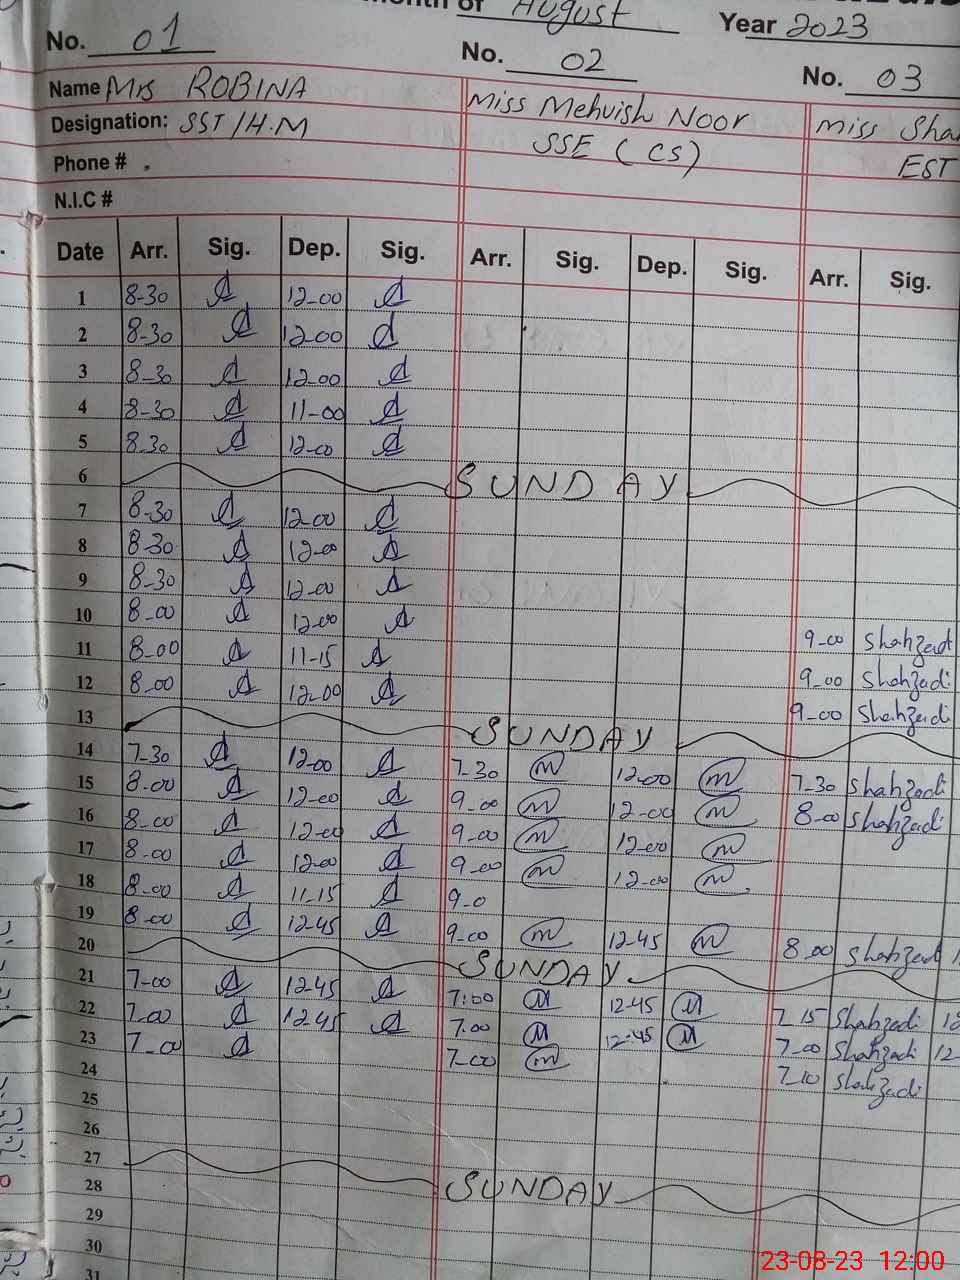 Month of August Year 2023
No. 01 No. 02 No. 03
Name Mrs ROBINA Miss Mehvish Noor Miss
Designation: SST/H.M SSE (CS) EST
Phone #
N.I.C #
Date Arr. Sig. Dep. Sig. Arr. Sig. Dep. Sig. Arr. Sig.
1 8-30 12-00
2 8-30 12-00
3 8-30 12-00
4 8-30 11-00
5 8-30 12-00
6 SUNDAY
7 8-30 12-00
8 8-30 12-00
9 8-30 12-00
10 8-00 12-00 9-00 Shahzadi
11 8-00 11-15 9-00 Shahzadi
12 8-00 12-00 9-00 Shahzadi
13 SUNDAY
14 7-30 12-00 7-30 M 12-00 M 7-30 Shahzadi
15 8-00 12-00 9-00 M 12-00 M 8-00 Shahzadi
16 8-00 12-00 9-00 M 12-00 M
17 8-00 12-00 9-00 M 12-00 M
18 8-00 11-15 9-0
19 8-00 12-45 9-00 M 12-45 M 8-00 Shahzadi
20 SUNDAY
21 7-00 12-45 7:00 M 12-45 M 7-15 Shahzadi
22 7-00 12-45 7.00 M 12-45 M 7-00 Shahzadi 12-
23 7-00 7-00 M 7-10 Shahzadi
24
25
26
27 SUNDAY
28
29
30
31
23-08-23 12:00